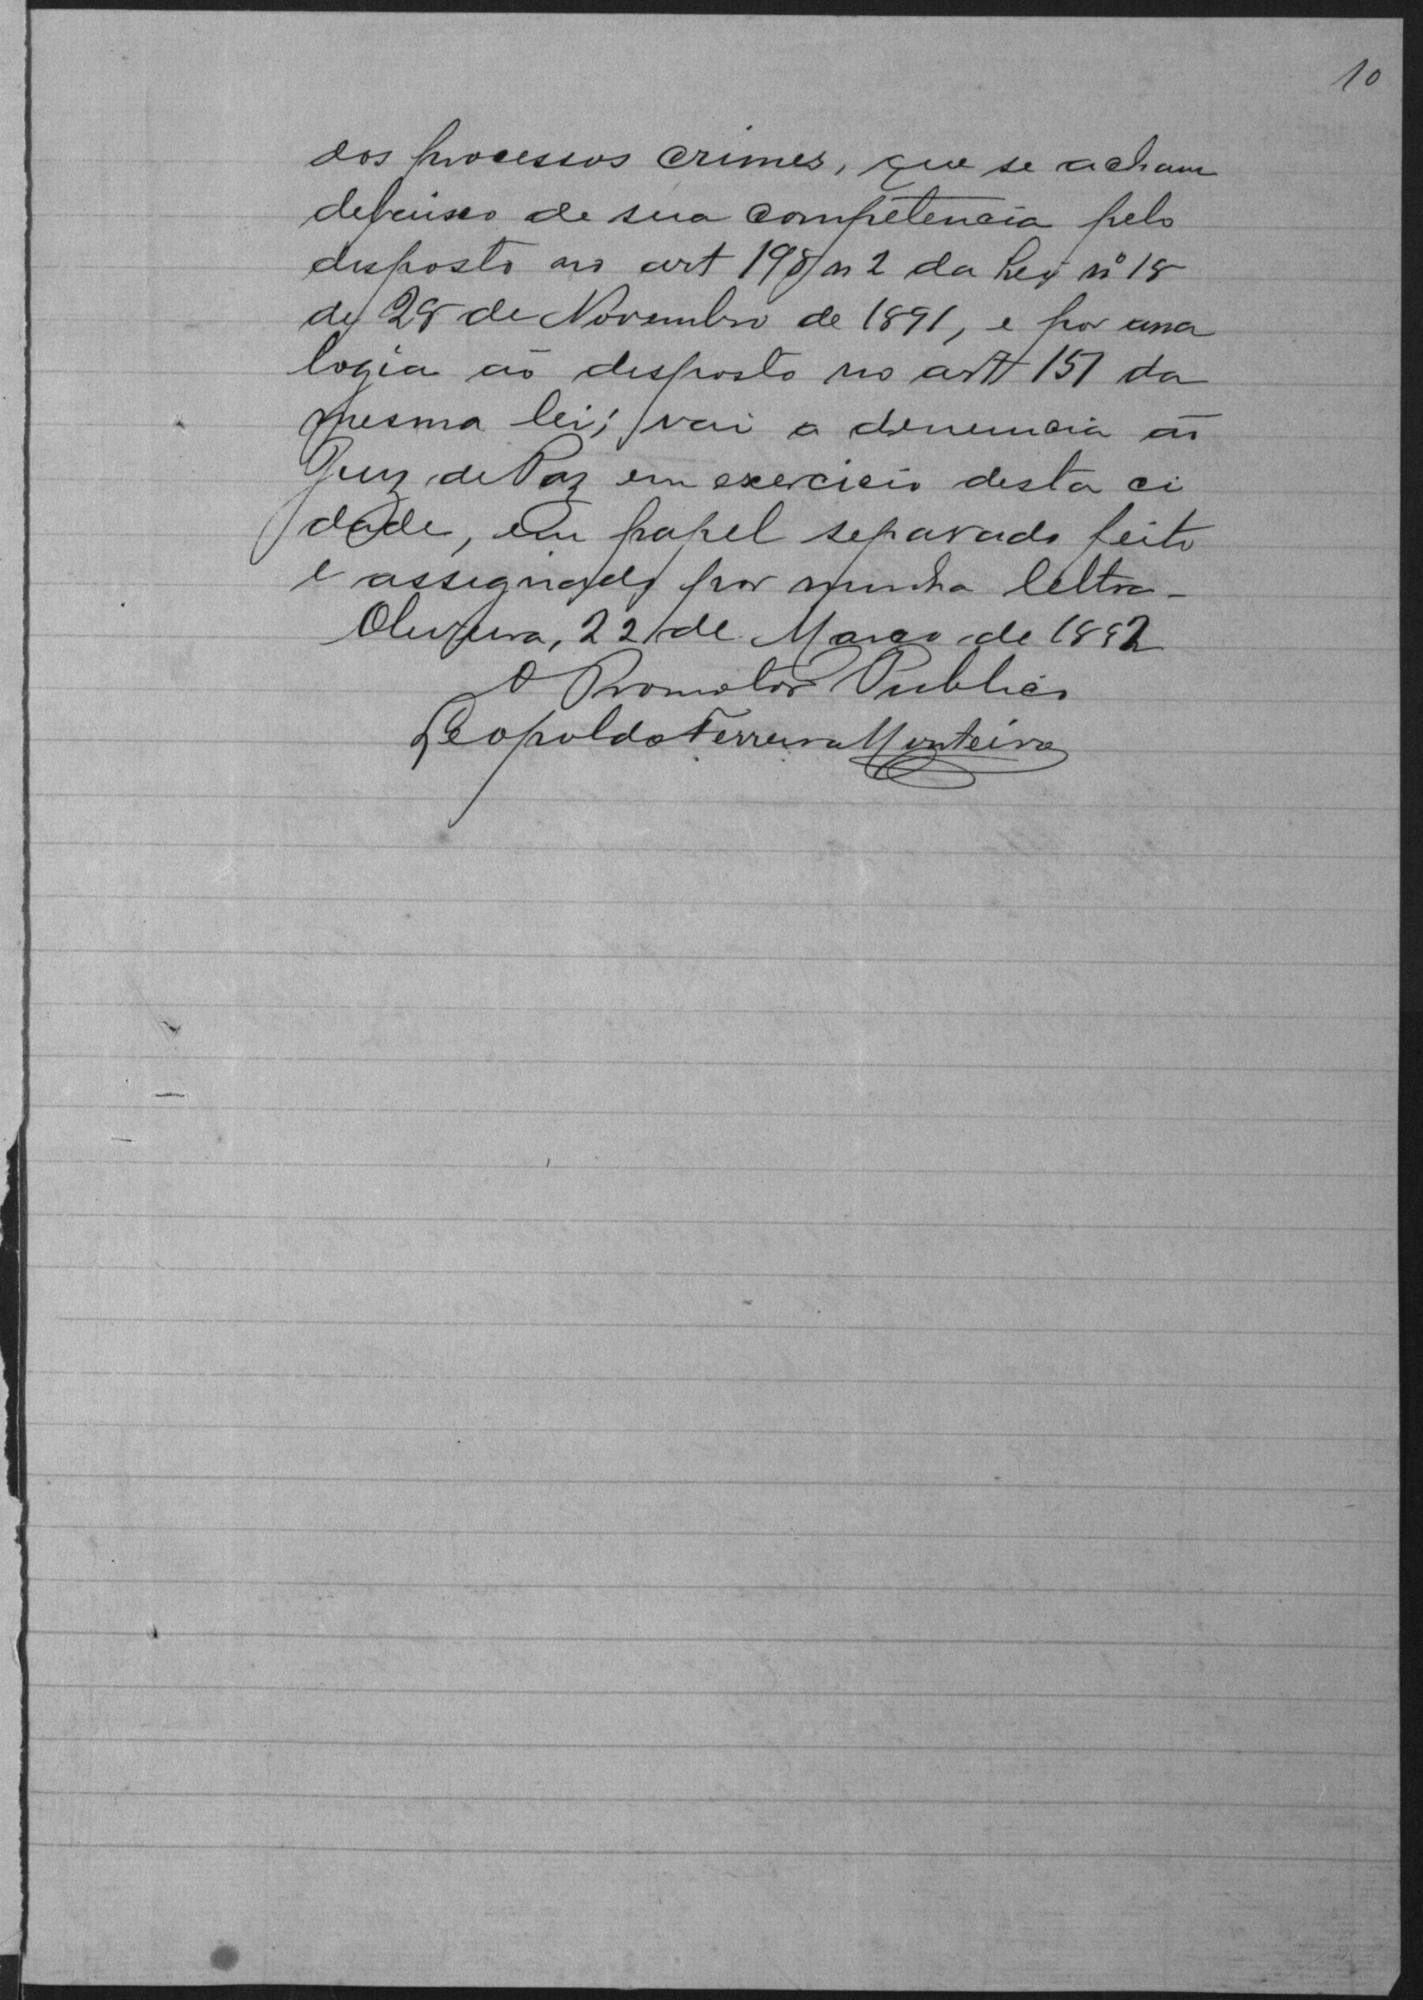 10
dos processos crimes, que se acham
debaixo de sua competencia pelo
disposto no art 198 n 2 da Ley nº 18
de 28 de Novembro de 1891, e por ana
logia ao disposto no art 151 da
mesma lei; vai a denuncia ao
Juiz de Paz em exercicio desta ci
dade, em papel separado feito
e assignado por minha lettra-
Oliveira, 22 de Março de 1892
O Promotor Publico
Leopoldo Ferreira Monteiro